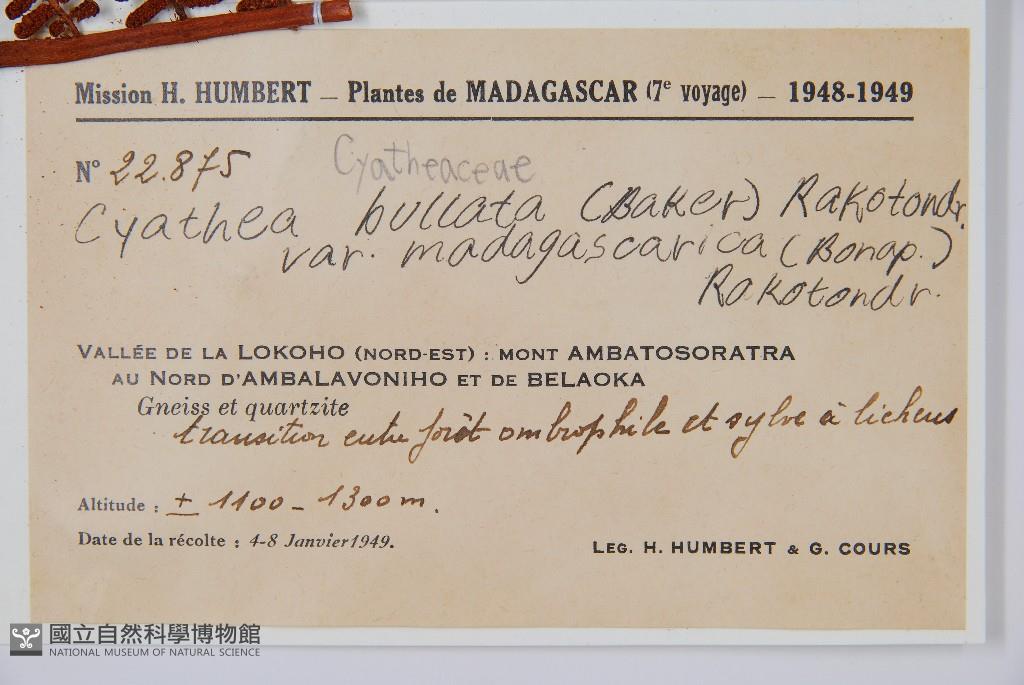 Mission H. HUMBERT — Plantes de MADAGASCAR (7e voyage) — 1948-1949
N° 22.875 Cyatheaceae
Cyathea bullata (Baker) Rakotondr.
var. madagascarica (Bonap.)
Rakotondr.
VALLÉE DE LA LOKOHO (NORD-EST) : MONT AMBATOSORATRA
AU NORD D'AMBALAVONIHO ET DE BELAOKA
Gneiss et quartzite
transition entre forêt ombrophile et sylve à lichens
Altitude : ± 1100 - 1300 m.
Date de la récolte : 4-8 Janvier 1949.
LEG. H. HUMBERT & G. COURS
國立自然科學博物館
NATIONAL MUSEUM OF NATURAL SCIENCE